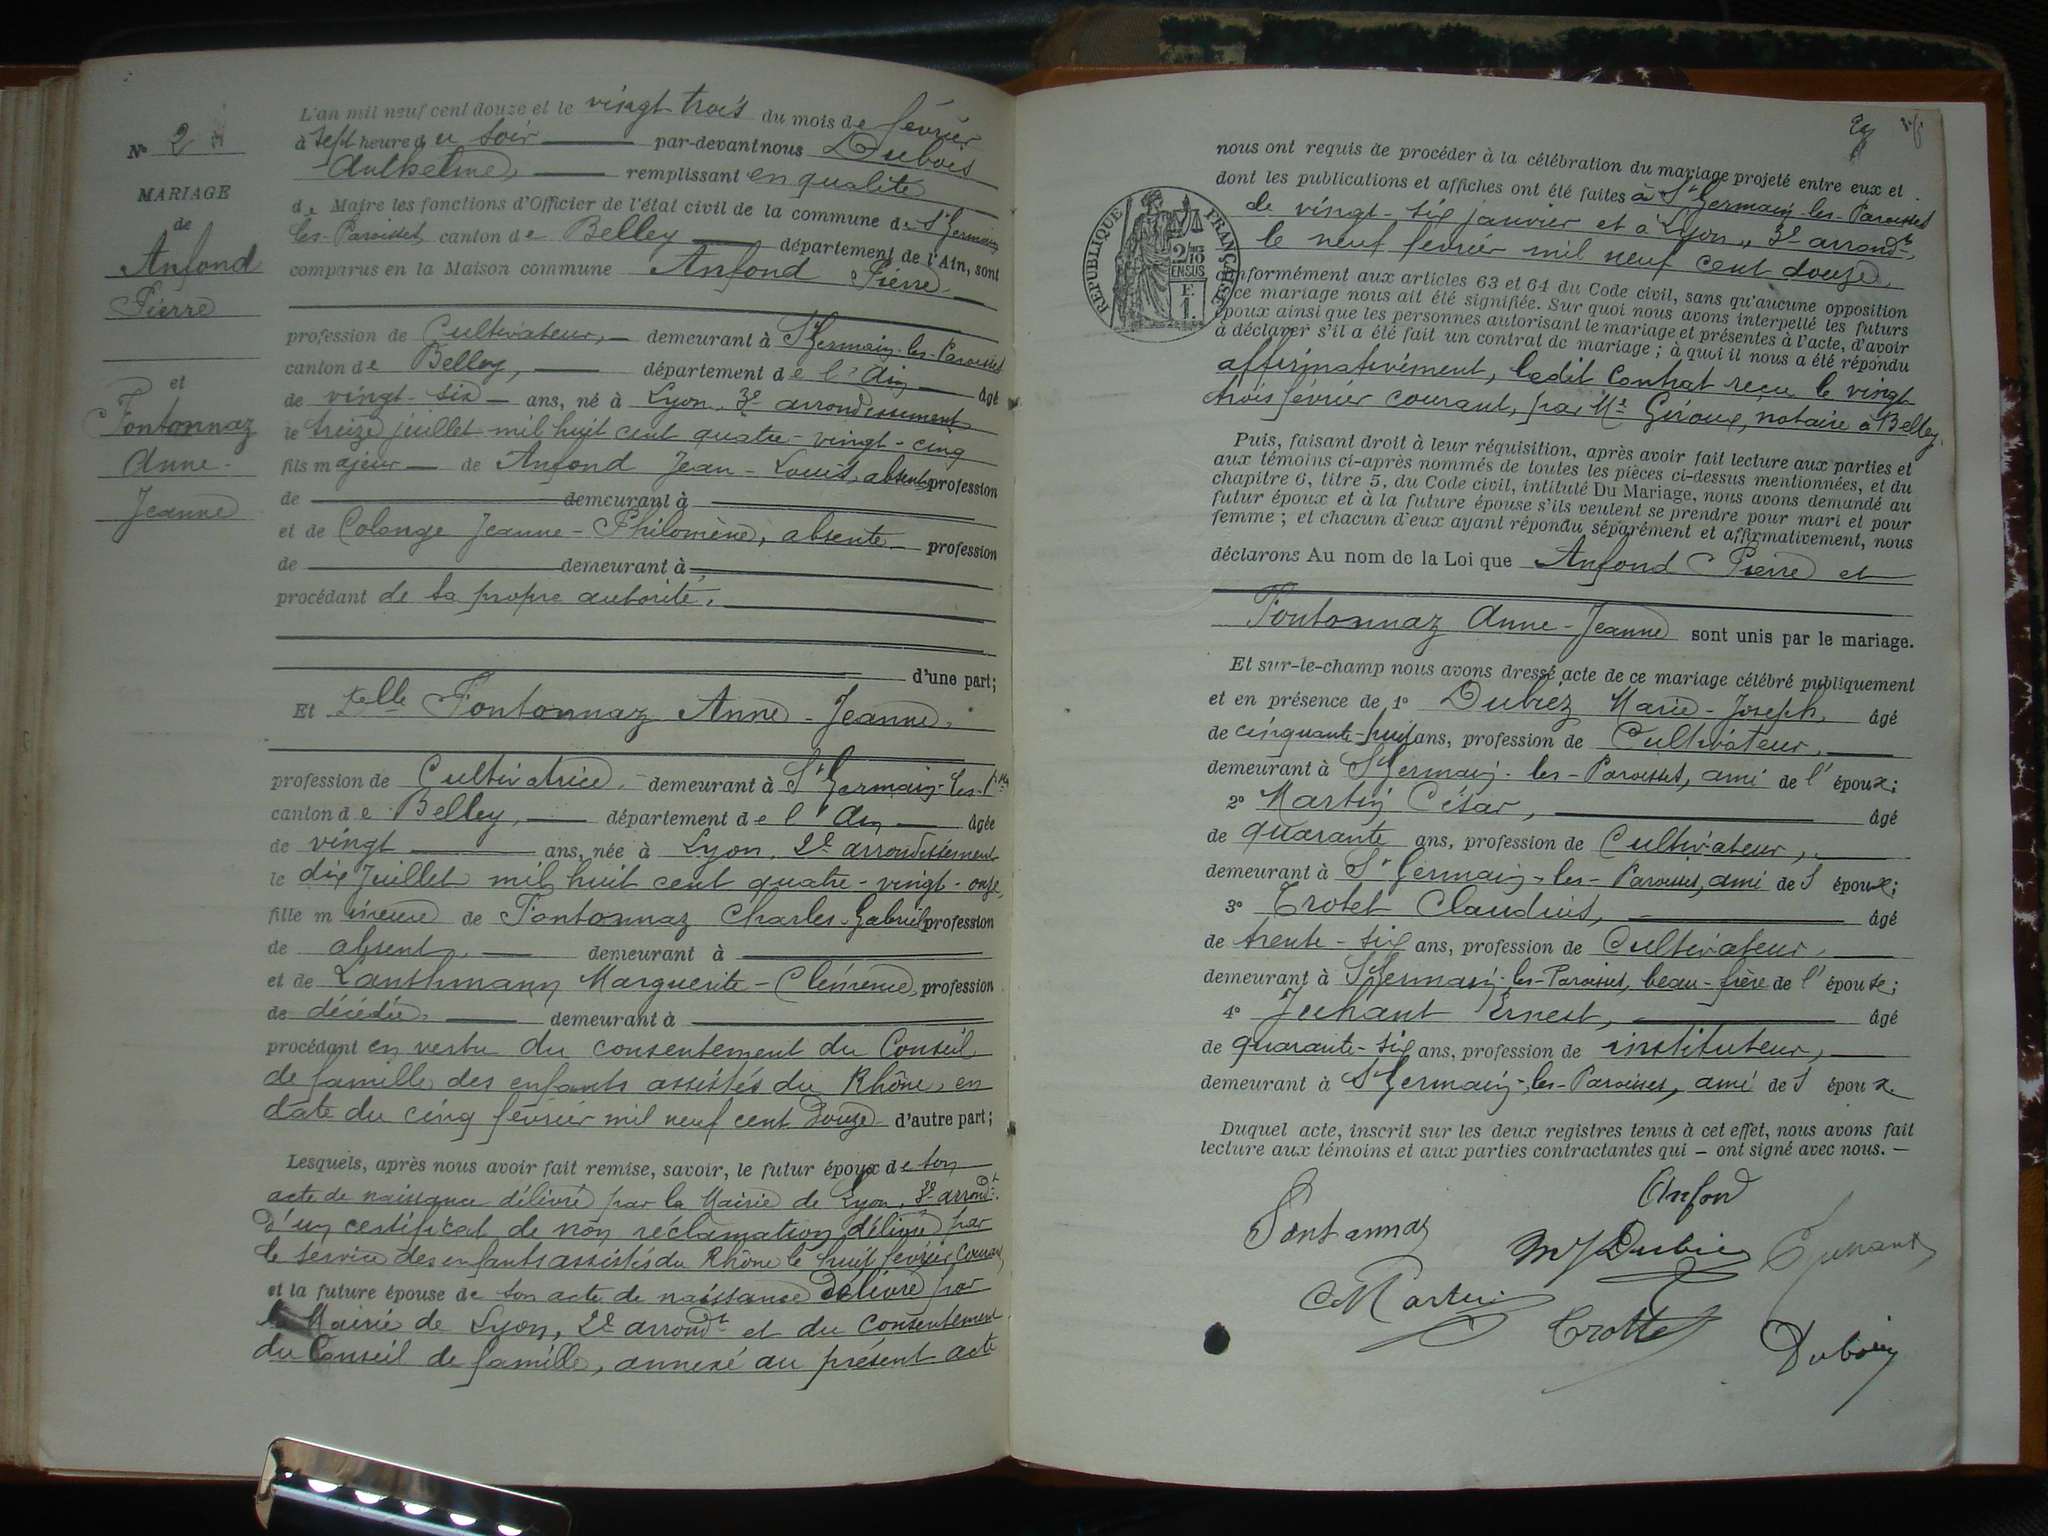 L'an mil neuf cent douze et le vingt trois du mois de février
à sept heures du soir par-devant nous Dubois
Anthelme remplissant en qualité
de Maire les fonctions d'Officier de l'état civil de la commune de St Germain
les-Paroisses canton de Belley département de l'Ain, sont
comparus en la Maison commune Anfond Pierre
profession de Cultivateur, demeurant à St Germain-les-Paroisses
canton de Belley, département de l'Ain âgé
de vingt-six ans, né à Lyon, 3e arrondissement
le treize juillet mil huit cent quatre-vingt-cinq
fils majeur de Anfond Jean-Louis, absent profession
de demeurant à
et de Colonge Jeanne-Philomène, absente profession
de demeurant à
procédant de sa propre autorité,
d'une part;
Et Delle Fontonnaz Anne-Jeanne,
profession de Cultivatrice, demeurant à St Germain-les-P.ses
canton de Belley, département de l'Ain âgée
de vingt ans, née à Lyon, 2e arrondissement
le dix Juillet mil huit cent quatre-vingt-onze,
fille mineure de Fontonnaz Charles-Gabriel profession
de absent, demeurant à
et de Lansthmann Marguerite-Clémence, profession
de décédée, demeurant à
procédant en vertu du consentement du Conseil
de famille des enfants assistés du Rhône, en
date du cinq février mil neuf cent douze d'autre part;
Lesquels, après nous avoir fait remise, savoir, le futur époux de son
acte de naissance délivré par la Mairie de Lyon, 3e arrondt.
d'un certificat de non réclamation délivré par
le service des enfants assistés du Rhône le huit février courant
et la future épouse de son acte de naissance délivré par
la Mairie de Lyon, 2e arrondt et du consentement
du Conseil de famille, annexé au présent acte
No 2
MARIAGE
de
Anfond
Pierre
et
Fontonnaz
Anne-
Jeanne
nous ont requis de procéder à la célébration du mariage projeté entre eux et
dont les publications et affiches ont été faites à St Germain-les-Paroisses
le vingt-six janvier et à Lyon, 3e arrondt,
le neuf février mil neuf cent douze,
conformément aux articles 63 et 64 du Code civil, sans qu'aucune opposition
à ce mariage nous ait été signifiée. Sur quoi nous avons interpellé les futurs
époux ainsi que les personnes autorisant le mariage et présentes à l'acte, d'avoir
à déclarer s'il a été fait un contrat de mariage; à quoi il nous a été répondu
affirmativement, ledit contrat reçu le vingt
trois février courant, par Me Giroux, notaire à Belley.
Puis, faisant droit à leur réquisition, après avoir fait lecture aux parties et
aux témoins ci-après nommés de toutes les pièces ci-dessus mentionnées, et du
chapitre 6, titre 5, du Code civil, intitulé Du Mariage, nous avons demandé au
futur époux et à la future épouse s'ils veulent se prendre pour mari et pour
femme; et chacun d'eux ayant répondu séparément et affirmativement, nous
déclarons Au nom de la Loi que Anfond Pierre et
Fontonnaz Anne-Jeanne sont unis par le mariage.
Et sur-le-champ nous avons dressé acte de ce mariage célébré publiquement
et en présence de 1o Dubiez Marie-Joseph, âgé
de cinquante-huit ans, profession de Cultivateur,
demeurant à St Germain-les-Paroisses, ami de l'époux;
2o Martin César, âgé
de quarante ans, profession de Cultivateur,
demeurant à St Germain-les-Paroisses, ami de l'époux;
3o Trotet Claudius, âgé
de trente-six ans, profession de Cultivateur,
demeurant à St Germain-les-Paroisses, beau-frère de l'épouse;
4o Juhant Ernest, âgé
de quarante-six ans, profession de instituteur,
demeurant à St Germain-les-Paroisses, ami de l'époux.
Duquel acte, inscrit sur les deux registres tenus à cet effet, nous avons fait
lecture aux témoins et aux parties contractantes qui – ont signé avec nous. –
Anfond
Fontannaz
MJ Dubiez
E Juhant
C Martin
Trottet
Dubois
RÉPUBLIQUE FRANÇAISE
2/10
EN SUS
F.
1.